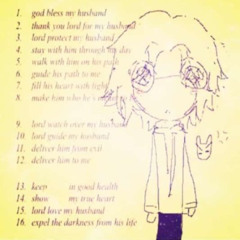 1. god bless my husband
2. thank you lord for my husband
3. lord protect my husband
4. stay with him through his day
5. walk with him on his path
6. guide his path to me
7. fill his heart with light
8. make him who he's
9. lord watch over my husband
10. lord guide my husband
11. deliver him from evil
12. deliver him to me
13. keep in good health
14. show my true heart
15. lord love my husband
16. expel the darkness from his life